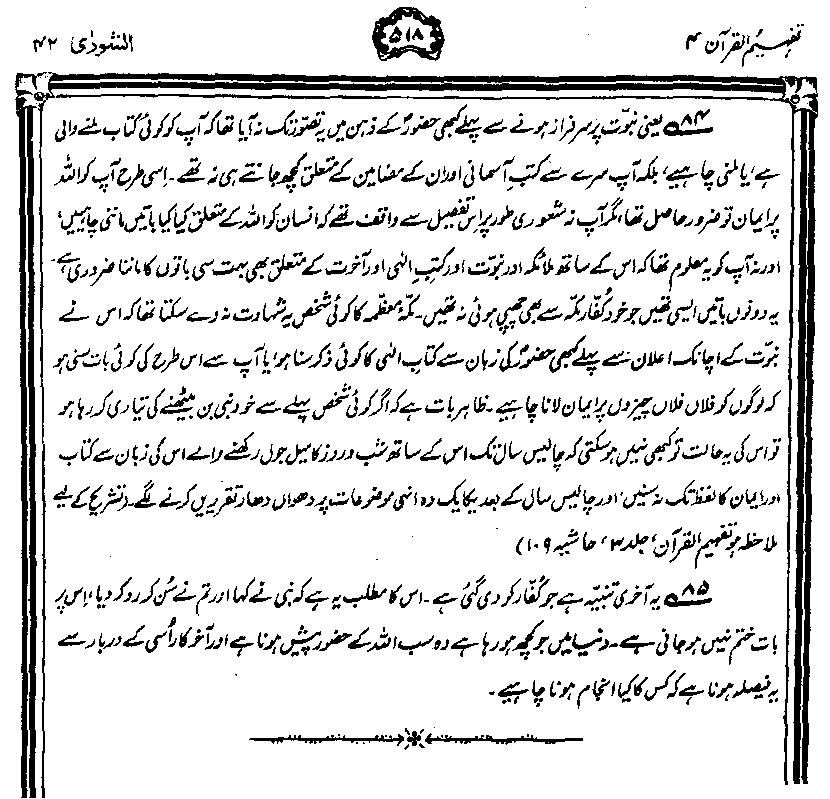 تفہیم القرآن ۴
۵۱۸
الشوریٰ ۴۲
۸۴؎ یعنی نبوّت پر سرفراز ہونے سے پہلے کبھی حضورؐ کے ذہن میں یہ تصوّر تک نہ آیا تھا کہ آپ کو کوئی کتاب ملنے والی
ہے، یا ملنی چاہیے، بلکہ آپ سرے سے کتبِ آسمانی اور ان کے مضامین کے متعلق کچھ جانتے ہی نہ تھے۔ اِسی طرح آپ کو اللہ
پر ایمان تو ضرور حاصل تھا، مگر آپ نہ شعوری طور پر اِس تفصیل سے واقف تھے کہ انسان کو اللہ کے متعلق کیا کیا باتیں ماننی چاہییں،
اور نہ آپ کو یہ معلوم تھا کہ اس کے ساتھ ملائکہ اور نبوّت اور کتبِ الٰہی اور آخرت کے متعلق بھی بہت سی باتوں کا ماننا ضروری ہے۔
یہ دونوں باتیں ایسی تھیں جو خود کُفّارِ مکّہ سے بھی چھپی ہوئی نہ تھیں۔ مکۂ معظمہ کا کوئی شخص یہ شہادت نہ دے سکتا تھا کہ اس نے
نبوّت کے اچانک اعلان سے پہلے کبھی حضورؐ کی زبان سے کتابِ الٰہی کا کوئی ذکر سنا ہو، یا آپ سے اس طرح کی کوئی بات سنی ہو
کہ لوگوں کو فلاں فلاں چیزوں پر ایمان لانا چاہیے۔ ظاہر بات ہے کہ اگر کوئی شخص پہلے سے خود نبی بن بیٹھنے کی تیاری کر رہا ہو
تو اس کی یہ حالت تو کبھی نہیں ہو سکتی کہ چالیس سال تک اس کے ساتھ شب و روز کا میل جول رکھنے والے اس کی زبان سے کتاب
اور ایمان کا لفظ تک نہ سنیں، اور چالیس سال کے بعد یکایک وہ انہی موضوعات پر دھواں دھار تقریریں کرنے لگے۔ (تشریح کے لیے
ملاحظہ ہو تفہیم القرآن، جلد ۳، حاشیہ ۱۰۹)
۸۵؎ یہ آخری تنبیہ ہے جو کُفّار کو دی گئی ہے۔ اس کا مطلب یہ ہے کہ نبی نے کہا اور تم نے سُن کر رد کر دیا، اِس پر
بات ختم نہیں ہو جانی ہے۔ دنیا میں جو کچھ ہو رہا ہے وہ سب اللہ کے حضور پیش ہونا ہے اور آخر کار اُسی کے دربار سے
یہ فیصلہ ہونا ہے کہ کس کا کیا انجام ہونا چاہیے۔